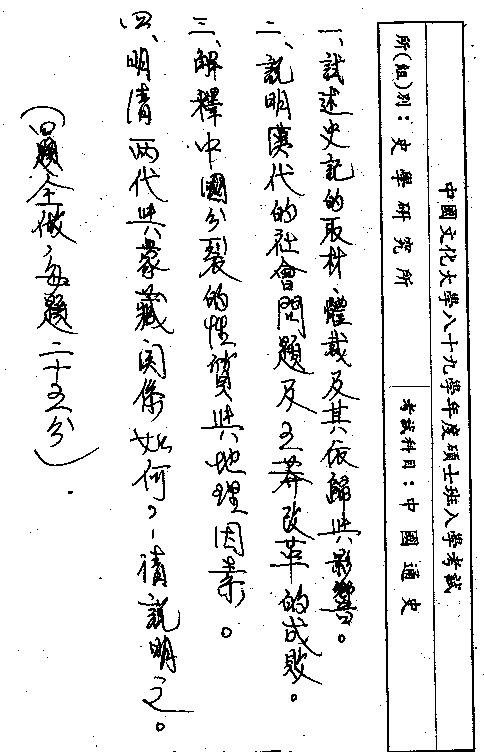 中國文化大學八十九學年度碩士班入學考試
所(組)別：史學研究所
考試科目：中國通史
一、試述史記的取材、體裁及其依歸與影響。
二、說明漢代的社會問題及王莽改革的成敗。
三、解釋中國分裂的性質與地理因素。
四、明清兩代與蒙藏関係如何？請說明之。
(四題全做，每題二十五分)．